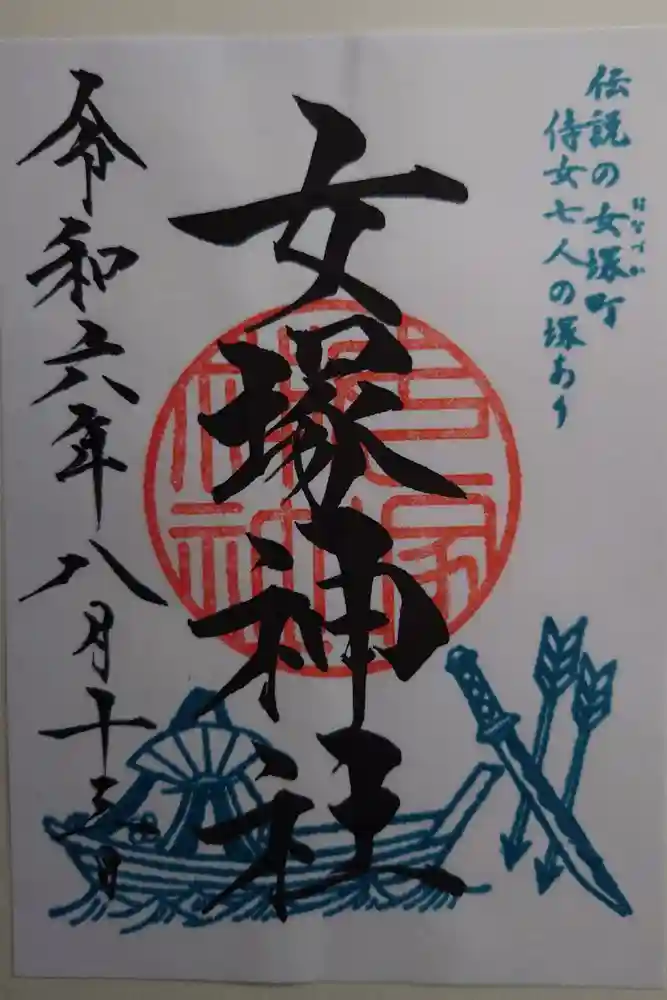 伝説の女塚町
はなづか
侍女七人の塚あり
女塚神社
令和六年八月十三日